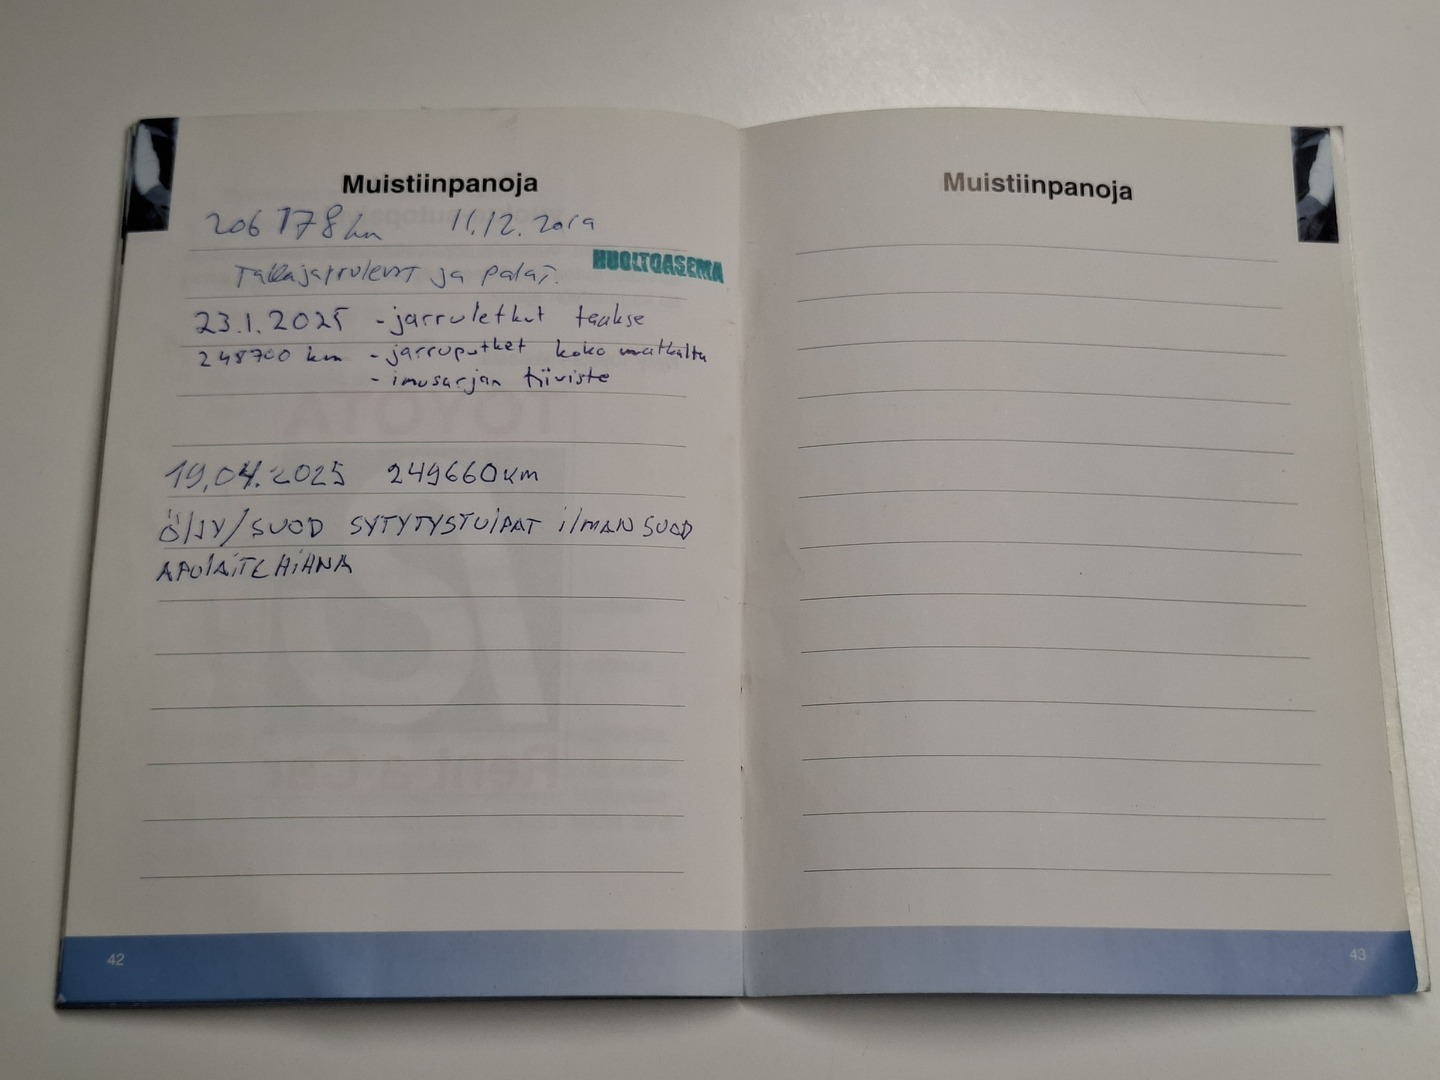 Muistiinpanoja
206 178 km 11.12.2019
Takajarrulevyt ja palat.
HUOLTOASEMA
23.1.2025 - jarruletkut taakse
248700 km - jarruputket koko matkalta
- imusarjan tiiviste
19.04.2025 249660km
ÖljY/SUOD SYTYTYSTULPAT ilMAN SUOD
APULAITEHIHNA
42
Muistiinpanoja
43